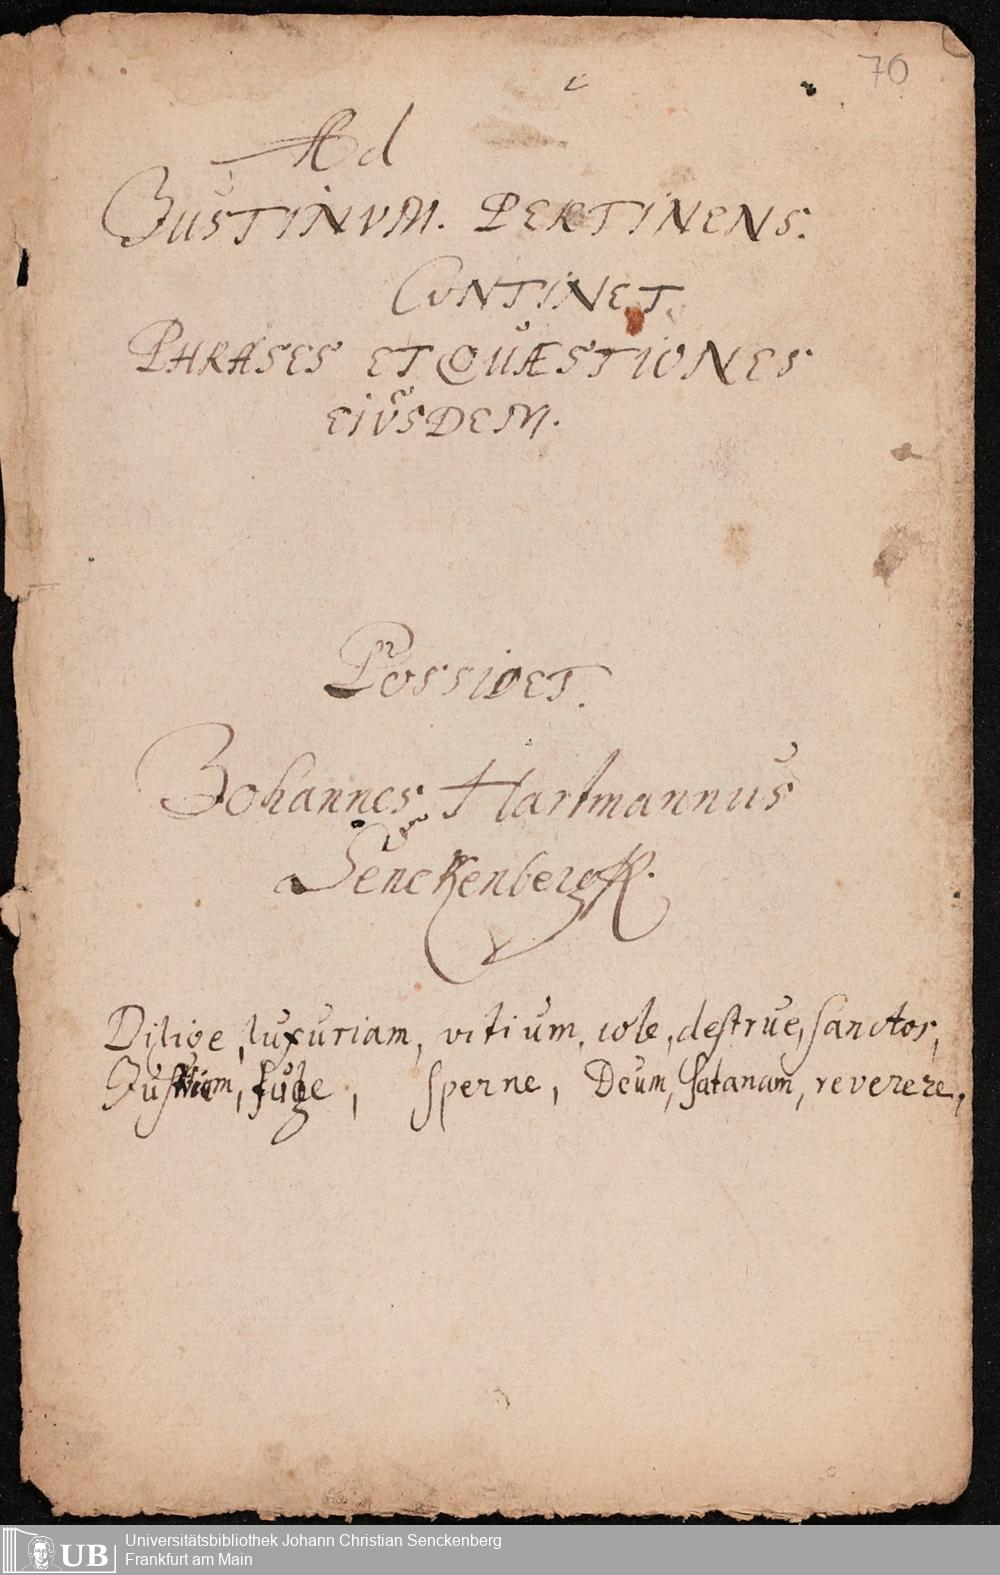 70
Ad
JUSTINVM. PERTINENS.
CONTINET
PHRASES ET QUÆSTIONES
EIUSDEM.
POSSIDET.
Johannes Hartmannus
Senckenbergk.
Dilige, luxuriam, vitium, cole, destrue, sanctos,
Justitiam, fuge, sperne, Deum, satanam, reverere,
UB
Universitätsbibliothek Johann Christian Senckenberg
Frankfurt am Main